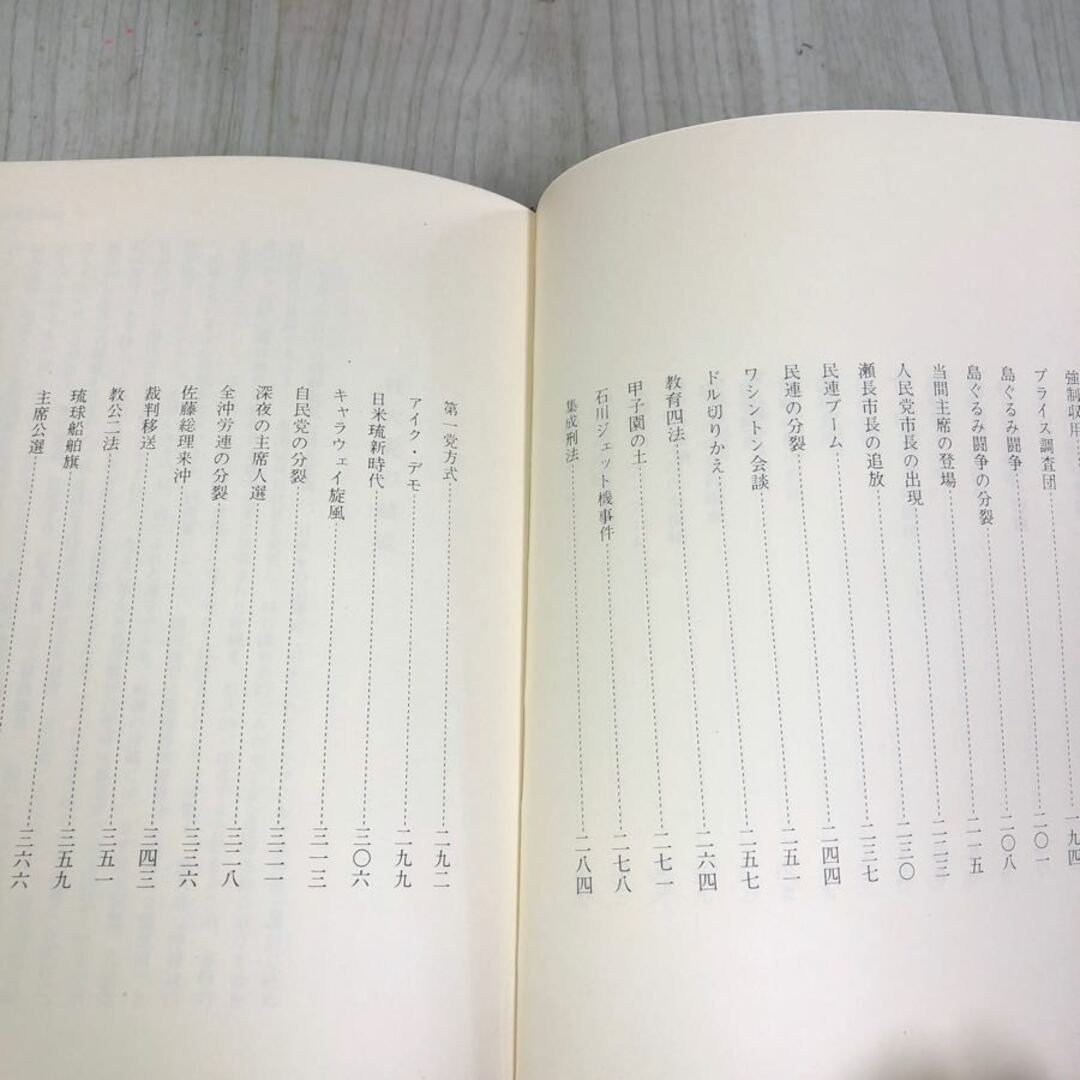 強制収用 一九四
プライス調査団 二〇一
島ぐるみ闘争 二〇八
島ぐるみ闘争の分裂 二一五
当間主席の登場 二二三
人民党市長の出現 二三〇
瀬長市長の追放 二三七
民連ブーム 二四四
民連の分裂 二五一
ワシントン会談 二五七
ドル切りかえ 二六四
教育四法 二七一
甲子園の土 二七八
石川ジェット機事件
集成刑法 二八四
第一党方式 二九二
アイク・デモ 二九九
日米琉新時代 三〇六
キャラウェイ旋風 三一三
自民党の分裂 三二一
深夜の主席人選 三二八
全沖労連の分裂 三三六
佐藤総理来沖 三四三
裁判移送 三五一
教公二法 三五九
琉球船舶旗 三六六
主席公選